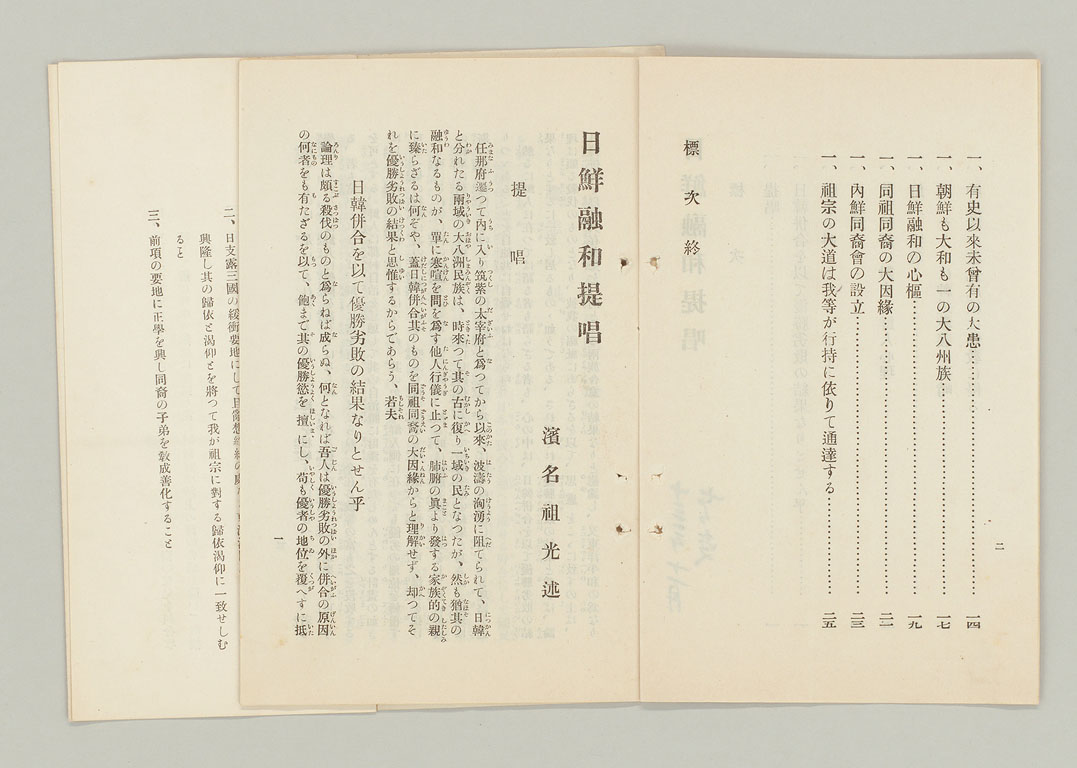 二
一、有史以來未曾有の大患……………………一四
一、朝鮮も大和も一の大八州族……………………一七
一、日鮮融和の心樞……………………一九
一、同祖同裔の大因緣……………………二一
一、內鮮同裔會の設立……………………二三
一、祖宗の大道は我等が行持に依りて通達する……………二五
標次終
日鮮融和提唱
濱名祖光述
提唱
任那府遷つて內に入り筑紫の太宰府と爲つてから以來、波濤の洶湧に阻てられて、日韓
と分れたる兩域の大八洲民族は、時來つて其の古に復り一域の民となつたが、然も猶其の
融和なるものが、單に寒喧を問を爲す他人行儀に止つて、肺腑の眞より發する家族的の親
に臻らざるは何ぞや、蓋日韓倂合其のものを同祖同裔の大因緣からと理解せず、却つてそ
れを優勝劣敗の結果と思惟するからであらう、若夫
日韓倂合を以て優勝劣敗の結果なりとせん乎
論理は頗る殺伐のものと爲らねば成らぬ、何となれば吾人は優勝劣敗の外に倂合の原因
の何者をも有たざるを以て、飽まで其の優勝慾を擅にし、苟も優者の地位を覆へすに抵
一
二、日支露三國の緩衝要地にして
興隆し其の歸依と渴仰とを將つて我が祖宗に對する歸依渴仰に一致せしむ
ると
三、前項の要地に正學を興し同裔の子弟を敎成善化すること